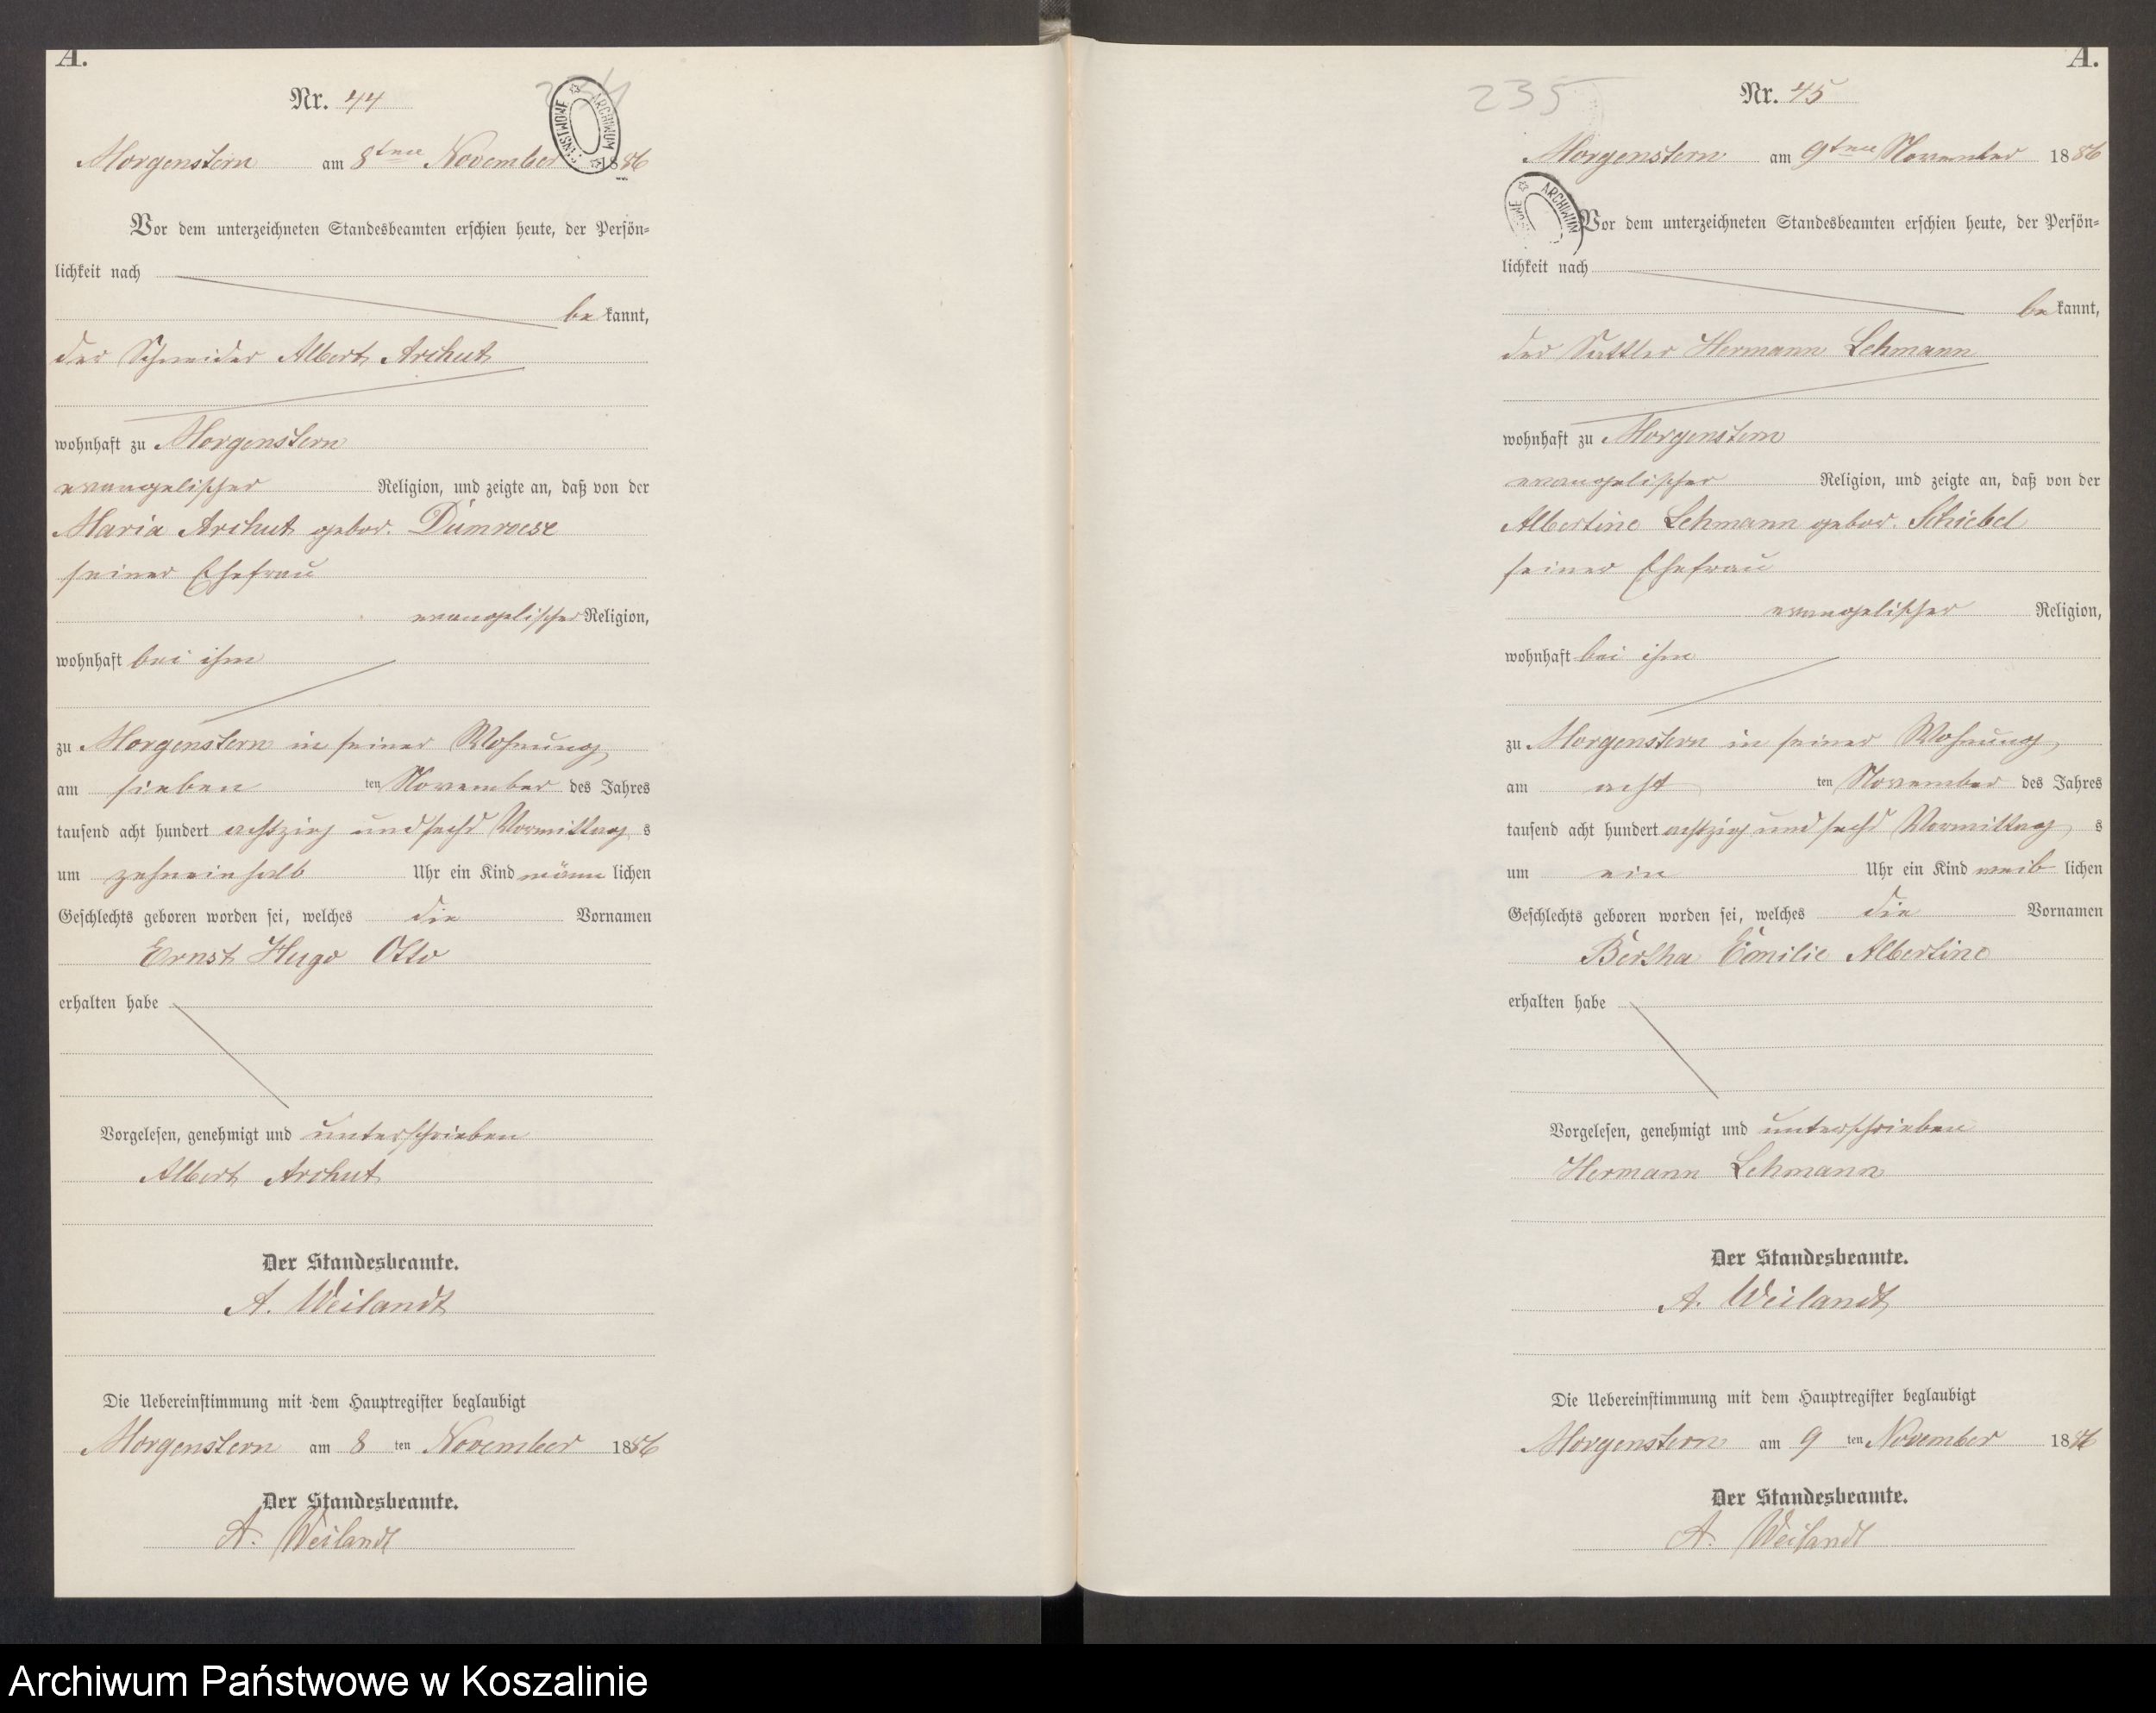 A.
Nr. 44
Morgenstern am 8ten November 1886
Vor dem unterzeichneten Standesbeamten erschien heute, der Persön-
lichkeit nach
be kannt,
der Schneider Albert Archut
wohnhaft zu Morgenstern
evangelischer Religion, und zeigte an, daß von der
Maria Archut gebor. Dümroese
seiner Ehefrau
evangelischer Religion,
wohnhaft bei ihm
zu Morgenstern in seiner Wohnung
am sieben ten November des Jahres
tausend acht hundert achtzig und sechs Vormittag s
um zehneinhalb Uhr ein Kind männ lichen
Geschlechts geboren worden sei, welches die Vornamen
Ernst Hugo Otto
erhalten habe
Vorgelesen, genehmigt und unterschrieben
Albert Archut
Der Standesbeamte.
A. Weilandt
Die Uebereinstimmung mit dem Hauptregister beglaubigt
Morgenstern am 8 ten November 1886
Der Standesbeamte.
A. Weilandt
A.
235
Nr. 45
Morgenstern am 9ten November 1886
ARCHIWUM
Vor dem unterzeichneten Standesbeamten erschien heute, der Persön-
lichkeit nach
be kannt,
der Sattler Hermann Lehmann
wohnhaft zu Morgenstern
evangelischer Religion, und zeigte an, daß von der
Albertine Lehmann gebor. Schiebel
seiner Ehefrau
evangelischer Religion,
wohnhaft bei ihm
zu Morgenstern in seiner Wohnung
am acht ten November des Jahres
tausend acht hundert achtzig und sechs Vormittag s
um ein Uhr ein Kind weib lichen
Geschlechts geboren worden sei, welches die Vornamen
Bertha Emilie Albertine
erhalten habe
Vorgelesen, genehmigt und unterschrieben
Hermann Lehmann
Der Standesbeamte.
A. Weilandt
Die Uebereinstimmung mit dem Hauptregister beglaubigt
Morgenstern am 9 ten November 1886
Der Standesbeamte.
A. Weilandt
Archiwum Państwowe w Koszalinie